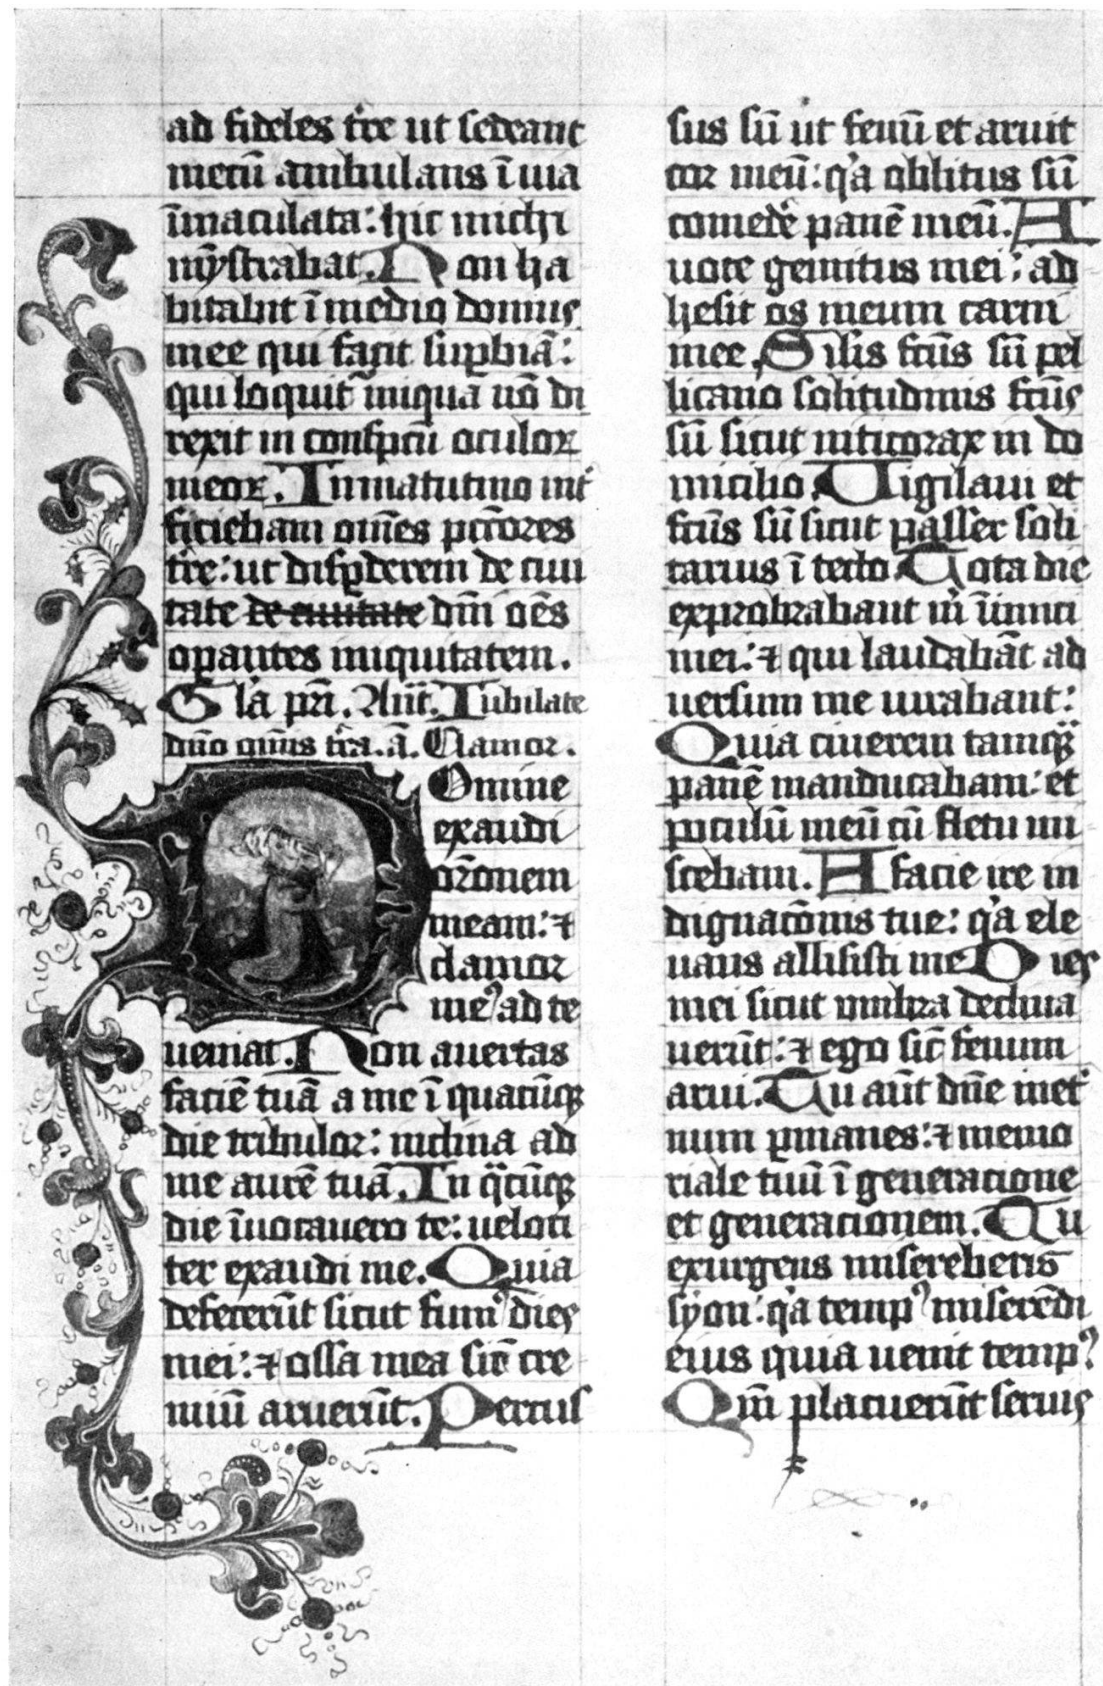 ad fideles tr̃e ut sedeant
mecũ ambulans ĩ uia
ĩmaculata: hic michi
mỹstrabat. Non ha
bitabit ĩ medio domus
mee qui facit suꝑbiã:
qui loquit᷑ iniqua nõ di
rexit in conspcũ oculoꝝ
meoꝝ. In matutino int̾
ficiebam om̃es pctõres
tr̃e: ut disꝑderem de ciui
tate de ciuitate dñi oẽs
oꝑantes iniquitatem.
Gl̾a pr̃i. Añ. Iubilate
dño om̃is tr̃a. a͂. Clamor.
Domine
exaudi
or̃onem
meam: ⁊
clamor
meꝰ ad te
ueniat. Non auertas
faciẽ tuã a me ĩ quacũqꝫ
die tribulor: inclina ad
me aurẽ tuã. In qᷓcũqꝫ
die ĩuocauero te: ueloci
ter exaudi me. Quia
defecerũt sicut fumꝰ dies
mei: ⁊ ossa mea sic̃ cre
miũ aruerũt. Percus
sus sũ ut fenũ et aruit
cor meũ: qͥa oblitus sũ
comedẽ panẽ meũ. A
uoce gemitus mei: ad
hesit os meum carni
mee. Silis fc̃us sũ pel
licano solitudinis fc̃us
sũ sicut niticorax in do
micilio. Uigilaui et
fc̃us sũ sicut passer soli
tarius ĩ tecto. Tota die
exprobrabant m̾ ĩimici
mei: ⁊ qui laudabãt ad
uersum me iurabant:
Quia cinerem tamqᷓꝫ
panẽ manducabam: et
poculũ meũ cũ fletu mi
scebam. A facie ire in
dignac̃onis tue: qͥa ele
uans allisisti me Dies
mei sicut umbra declina
uerũt: ⁊ ego sic̃ fenum
arui. Tu aũt dñe inet̾
num ꝑmanes: ⁊ memo
riale tuũ ĩ generacione
et generacionem. Tu
exurgens misereberis
syon: qͥa tempꝰ miserẽdi
eius quia uenit tempꝰ
Qm̃ placuerũt seruis